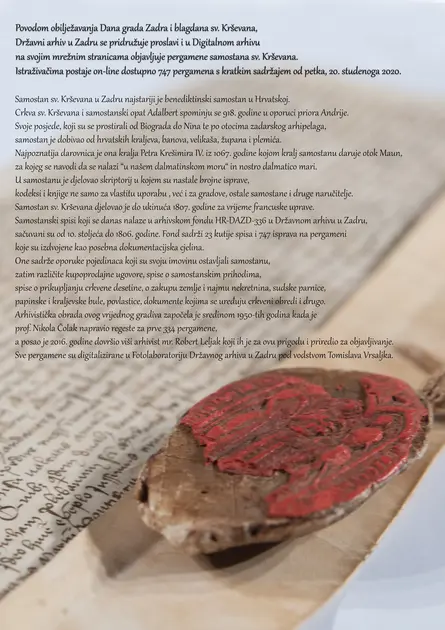 Povodom obilježavanja Dana grada Zadra i blagdana sv. Krševana,
Državni arhiv u Zadru se pridružuje proslavi i u Digitalnom arhivu
na svojim mrežnim stranicama objavljuje pergamene samostana sv. Krševana.
Istraživačima postaje on-line dostupno 747 pergamena s kratkim sadržajem od petka, 20. studenoga 2020.
Samostan sv. Krševana u Zadru najstariji je benediktinski samostan u Hrvatskoj.
Crkva sv. Krševana i samostanski opat Adalbert spominju se 918. godine u oporuci priora Andrije.
Svoje posjede, koji su se prostirali od Biograda do Nina te po otocima zadarskog arhipelaga,
samostan je dobivao od hrvatskih kraljeva, banova, velikaša, župana i plemića.
Najpoznatija darovnica je ona kralja Petra Krešimira IV. iz 1067. godine kojom kralj samostanu daruje otok Maun,
za kojeg se navodi da se nalazi "u našem dalmatinskom moru" in nostro dalmatico mari.
U samostanu je djelovao skriptorij u kojem su nastale brojne isprave,
kodeksi i knjige ne samo za vlastitu uporabu , već i za gradove, ostale samostane i druge naručitelje.
Samostan sv. Krševana djelovao je do ukinuća 1807. godine za vrijeme francuske uprave.
Samostanski spisi koji se danas nalaze u arhivskom fondu HR-DAZD-336 u Državnom arhivu u Zadru,
sačuvani su od 10. stoljeća do 1806. godine. Fond sadrži 23 kutije spisa i 747 isprava na pergameni
koje su izdvojene kao posebna dokumentacijska cjelina.
One sadrže oporuke pojedinaca koji su svoju imovinu ostavljali samostanu,
zatim različite kupoprodajne ugovore, spise o samostanskim prihodima,
spise o prikupljanju crkvene desetine, o zakupu zemlje i najmu nekretnina, sudske parnice,
papinske i kraljevske bule, povlastice, dokumente kojima se uređuju crkveni obredi i drugo.
Arhivistička obrada ovog vrijednog gradiva započela je sredinom 1950-tih godina kada je
prof. Nikola Čolak napravio regeste za prve 334 pergamene,
a posao je 2016. godine dovršio viši arhivist mr. Robert Leljak koji ih je za ovu prigodu i priredio za objavljivanje.
Sve pergamene su digitalizirane u Fotolaboratoriju Državnog arhiva u Zadru pod vodstvom Tomislava Vrsaljka.